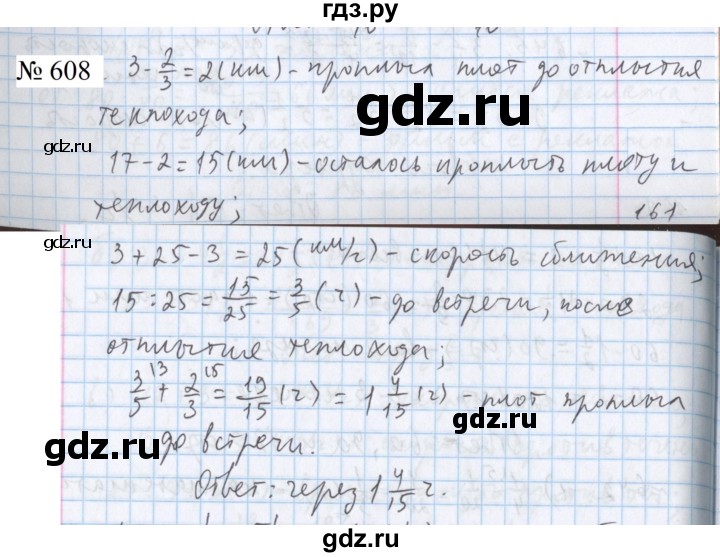 гдз.ру
№ 608
3 - 2/3 = 2 (км) - проплыл плот до отплытия
теплохода;
gdz.ru
gdz.ru
17 - 2 = 15 (км) - осталось проплыть плоту и
теплоходу;
161
gdz.ru
gdz.ru
3 + 25 - 3 = 25 (км/ч) - скорость сближения;
15 : 25 = 15/25 = 3/5 (ч) - до встречи, после
gdz.ru
отплытия теплохода;
gdz.ru
3/5 + 2/3 = 19/15 (ч) = 1 4/15 (ч) - плот проплыл
gdz.ru
до встречи.
gdz.ru
Ответ: через 1 4/15 ч.
gdz.ru
gdz.ru